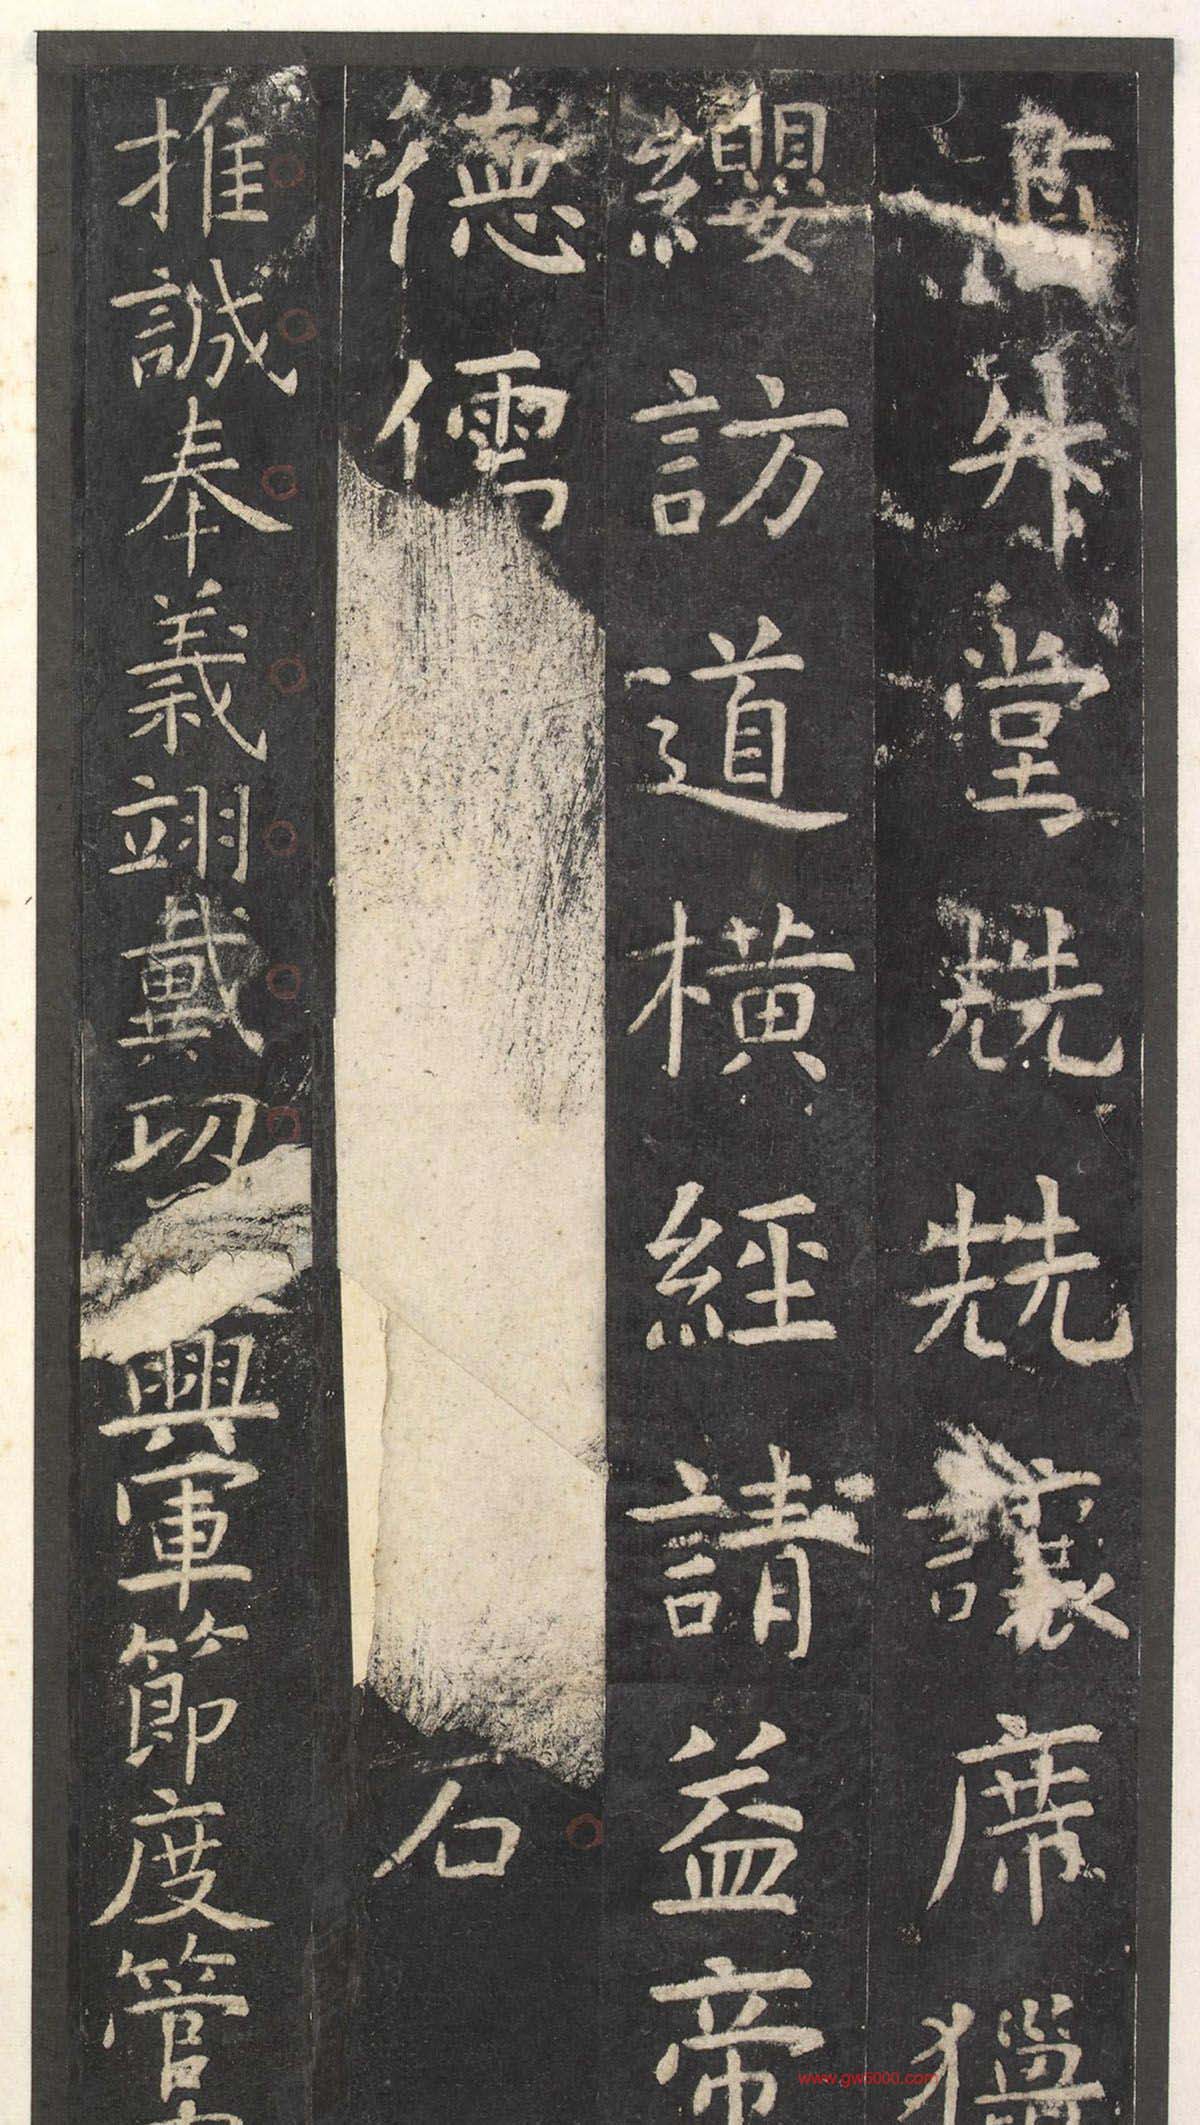 升堂兢兢讓席獵
纓訪道橫經請益帝
德儒石
推誠奉義翊戴功興軍節度管
www.gw5000.com